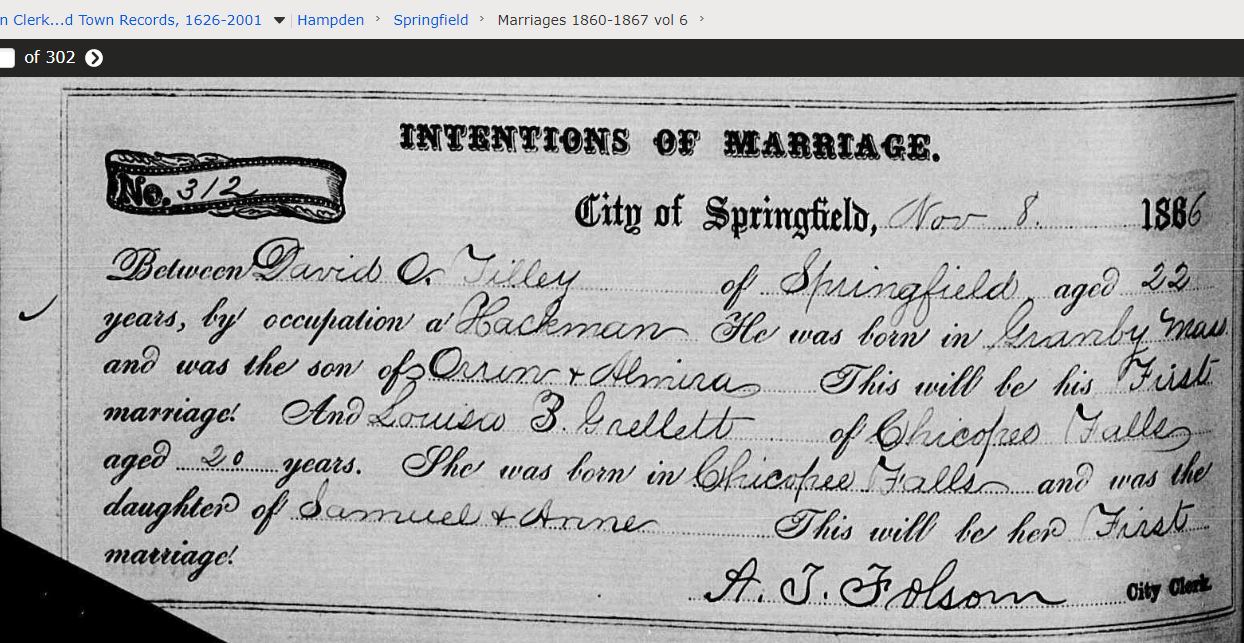 n Clerk...d Town Records, 1626-2001 Hampden › Springfield › Marriages 1860-1867 vol 6 ›
of 302
INTENTIONS OF MARRIAGE.
No. 312
City of Springfield, Nov 8. 1866
Between David O. Tilley of Springfield aged 22
years, by occupation a Hackman He was born in Granby Mass
and was the son of Orrin + Almira This will be his First
marriage. And Louisa B. Grellett of Chicopee Falls
aged 20 years. She was born in Chicopee Falls and was the
daughter of Samuel + Anne This will be her First
marriage.
A. T. Folsom City Clerk